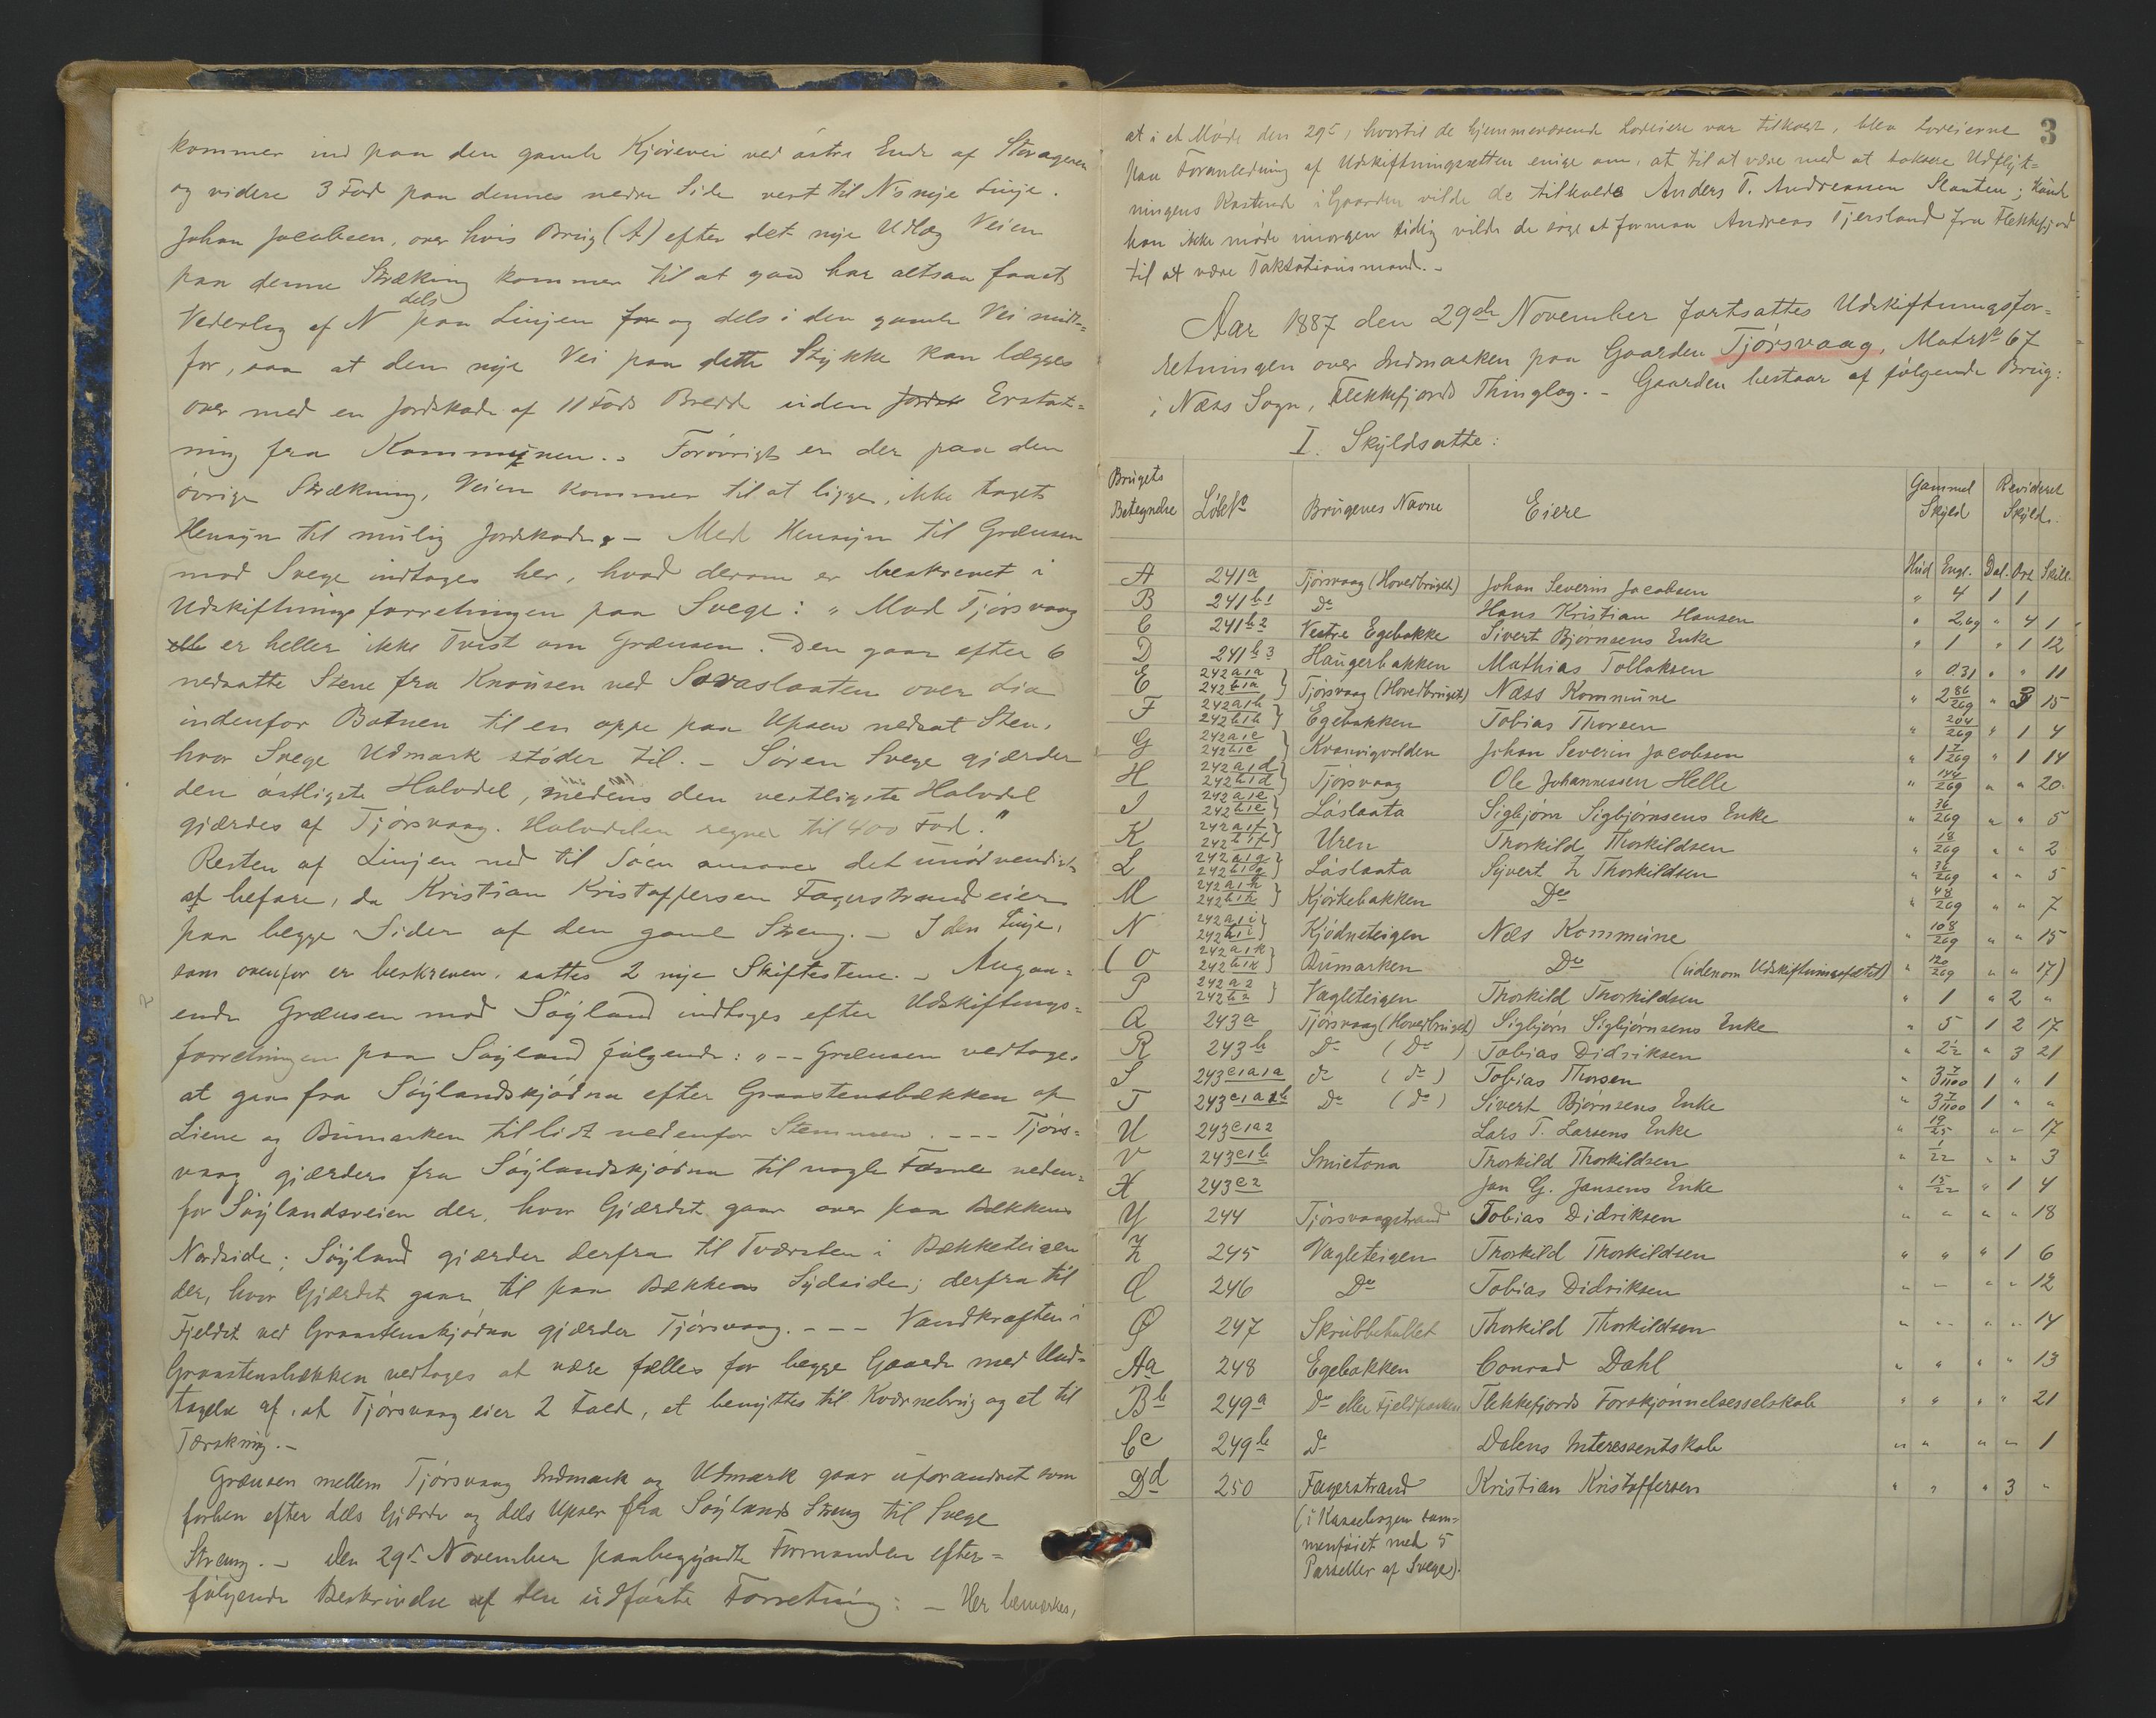 kommer ind paa den gamle Kjørevei ved østre Ende af Storageren
og videre 3 Fod paa dennes nedre Side vest til N's nye Linje.
Johan Jacobsen, over hvis Brug (A) efter det nye Udlæg Veien
paa denne Strækning kommer til at gaa har altsaa faaet
Vederlag af N dels paa Linjen for og dels i den gamle Vei midt=
for, saa at den nye Vei paa dette Stykke kan lægges
over med en Jordskade af 11 Fods Bredde uden Jordsk Erstat=
ning fra Kommunen. - Forøvrigt er der paa den
øvrige Strækning, Veien kommer til at ligge, ikke taget
Hensyn til mulig Jordskade. - Med Hensyn til Grænsen
mod Svege indtages her, hvad derom er beskrevet i
Udskiftningsforretningen paa Svege: "Mod Tjørsvaag
er heller ikke Tvist om Grænsen. Den gaar efter 6
nedsatte Stene fra Knausen ved Sovaslaaten over Lia
indenfor Botnen til en oppe paa Upsen nedsat Sten,
hvor Svege Udmark støder til. - Søren Svege gjærder
den østligste Halvdel, medens den vestligste Halvdel
gjærdes af Tjørsvaag. Halvdelen regnes til 400 Fod."
Resten af Linjen ned til Søen ansaaes det unødvendigt
at befare, da Kristian Kristoffersen Fagerstrand eier
paa begge Sider af den gamle Streng. - I den Linje,
som ovenfor er beskreven, sattes 2 nye Skiftestene. - Angaa=
ende Grænsen mod Søyland indtages efter Udskiftnings=
forretningen paa Søyland følgende: " -- Grænsen vedtages
at gaa fra Søylandskjødna efter Graastensbækken af
Liene og Bumarken til lidt nedenfor Stemmen. --- Tjørs=
vaag gjærder fra Søylandskjødna til nogle Favne neden=
for Søylandsveien der, hvor Gjærdet gaar over paa Bækkens
Nordside; Søyland gjærder derfra til Tværsten i Bækketeigen
der, hvor Gjærdet gaar til paa Bækkens Sydside; derfra til
Fjeldet ved Graastenskjødna gjærder Tjørsvaag. --- Vandkraften i
Graastensbækken vedtages at være fælles for begge Gaarde med Und=
tagelse af, at Tjørsvaag eier 2 Fald, et benyttes til Kværnebrug og et til
Tærskning. -
Grænsen mellem Tjørsvaag Indmark og Udmark gaar uforandret som
forhen efter dels Gjærde og dels Upser fra Søylands Streng til Svege
Streng. - Den 29de November paabegyndte Formanden efter=
følgende Beskrivelse af den udførte Forretning: - Her bemærkes,
3
at i et Møde den 29de, hvortil de hjemmeværende Lodeiere var tilkaldt, blev Lodeierne
paa Foranledning af Udskiftningsretten enige om, at til at være med at taksere Udflyt=
ningens Kostende i Gaarden vilde de tilkalde Anders T. Andreassen Slaaten; kunde
han ikke møde imorgen tidlig vilde de søge at formaa Andreas Tjersland fra Flekkefjord
til at være Taksationsmand. -
Aar 1887 den 29de November fortsattes Udskiftningsfor=
retningen over Indmarken paa Gaarden Tjørsvaag, Matr№ 67
i Næss Sogn, Flekkefjords Thinglag. - Gaarden bestaar af følgende Brug:
I. Skyldsatte:
Brugets Betegnelse Løb№ Brugenes Navne Eiere Gammel Skyld Revideret Skyld.
Hud Engl. Dal. Ort Skill.
A 241a Tjørsvaag (Hovedbruget) Johan Severin Jacobsen " 4 1 1
B 241b1 Do Hans Kristian Hansen " 2,69 " 4 1
C 241b2 Vestre Egebakke Sivert Bjørnsens Enke " 1 " 1 12
D 241b3 Haugerbakken Mathias Tollaksen " 0.31 " " 11
E 242a1a 242b1a } Tjørsvaag (Hovedbruget) Næss Kommune " 2 86/269 " 3 15
F 242a1b 242b1b } Egebakken Tobias Thorsen " 204/269 " 1 4
G 242a1c 242b1c } Kvanvigvolden Johan Severin Jacobsen " 1 7/269 " 1 14
H 242a1d 242b1d } Tjørsvaag Ole Johannessen Helle " 144/269 " " 20
I 242a1e 242b1e } Låslaata Sigbjørn Sigbjørnsens Enke " 36/269 " " 5
K 242a1f 242b1f } Uren Thorkild Thorkildsen " 18/269 " " 2
L 242a1g 242b1g } Låslaata Syvert Z Thorkildsen " 36/269 " " 5
M 242a1h 242b1h } Kjørkebakken Do " 48/269 " " 7
N 242a1i 242b1i } Kjødneteigen Næs Kommune " 108/269 " " 15
(O 242a1k 242b1k } Bumarken Do (udenom Udskiftningsfeltet) " 120/269 " " 17)
P 242a2 242b2 } Vagleteigen Thorkild Thorkildsen " 1 " 2 "
Q 243a Tjørsvaag (Hovedbruget) Sigbjørn Sigbjørnsens Enke " 5 1 2 17
R 243b Do (Do) Tobias Didriksen " 2½ " 3 21
S 243c1a1a do (do) Tobias Thorsen " 3 7/1100 1 " 1
T 243c1a1b Do (do) Sivert Bjørnsens Enke " 3 7/1100 1 " "
U 243c1a2 Lars T. Larsens Enke " 19/25 " " 17
V 243c1b Smietona Thorkild Thorkildsen " 1/22 " " 3
X 243c2 Jan G. Jansens Enke " 15/22 " 1 4
Y 244 Tjørsvaagstrand Tobias Didriksen " " " " 18
Z 245 Vagleteigen Thorkild Thorkildsen " " " 1 6
Æ 246 Do Tobias Didriksen " " " " 12
Ø 247 Skrubbehallet Thorkild Thorkildsen " " " " 14
Aa 248 Egebakken Conrad Dahl " " " " 13
Bb 249a Do eller Fjeldparken Flekkefjords Forskjønnelsesselskab " " " " 21
Cc 249b Do Dalens Interessentskab " " " " 1
Dd 250 Fagerstrand Kristian Kristoffersen " " " 3 "
(i Kassebogen sam=
menføiet med 5
Parseller af Svege).